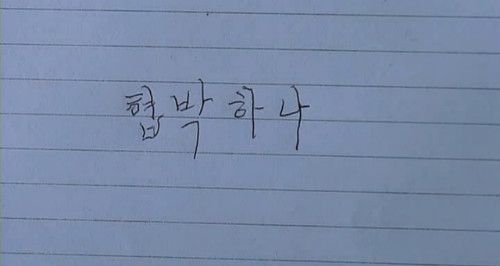 협박하나